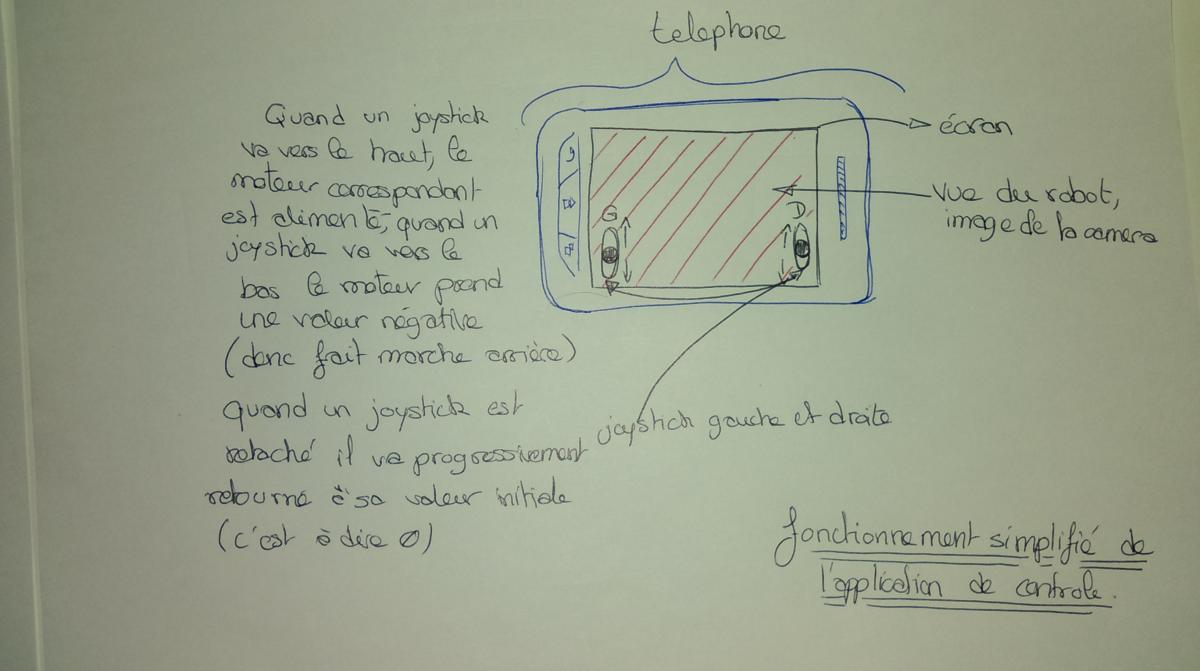 telephone
Quand un joystick
va vers le haut, le
moteur correspondant
est alimenté, quand un
joystick va vers le
bas le moteur prend
une valeur négative
(donc fait marche arrière)
quand un joystick est
relaché il va progressivement
retourné à sa valeur initiale
(c'est à dire 0)
écran
vue du robot,
image de la camera
G
D
joystick gauche et droite
fonctionnement simplifié de
l'application de controle.